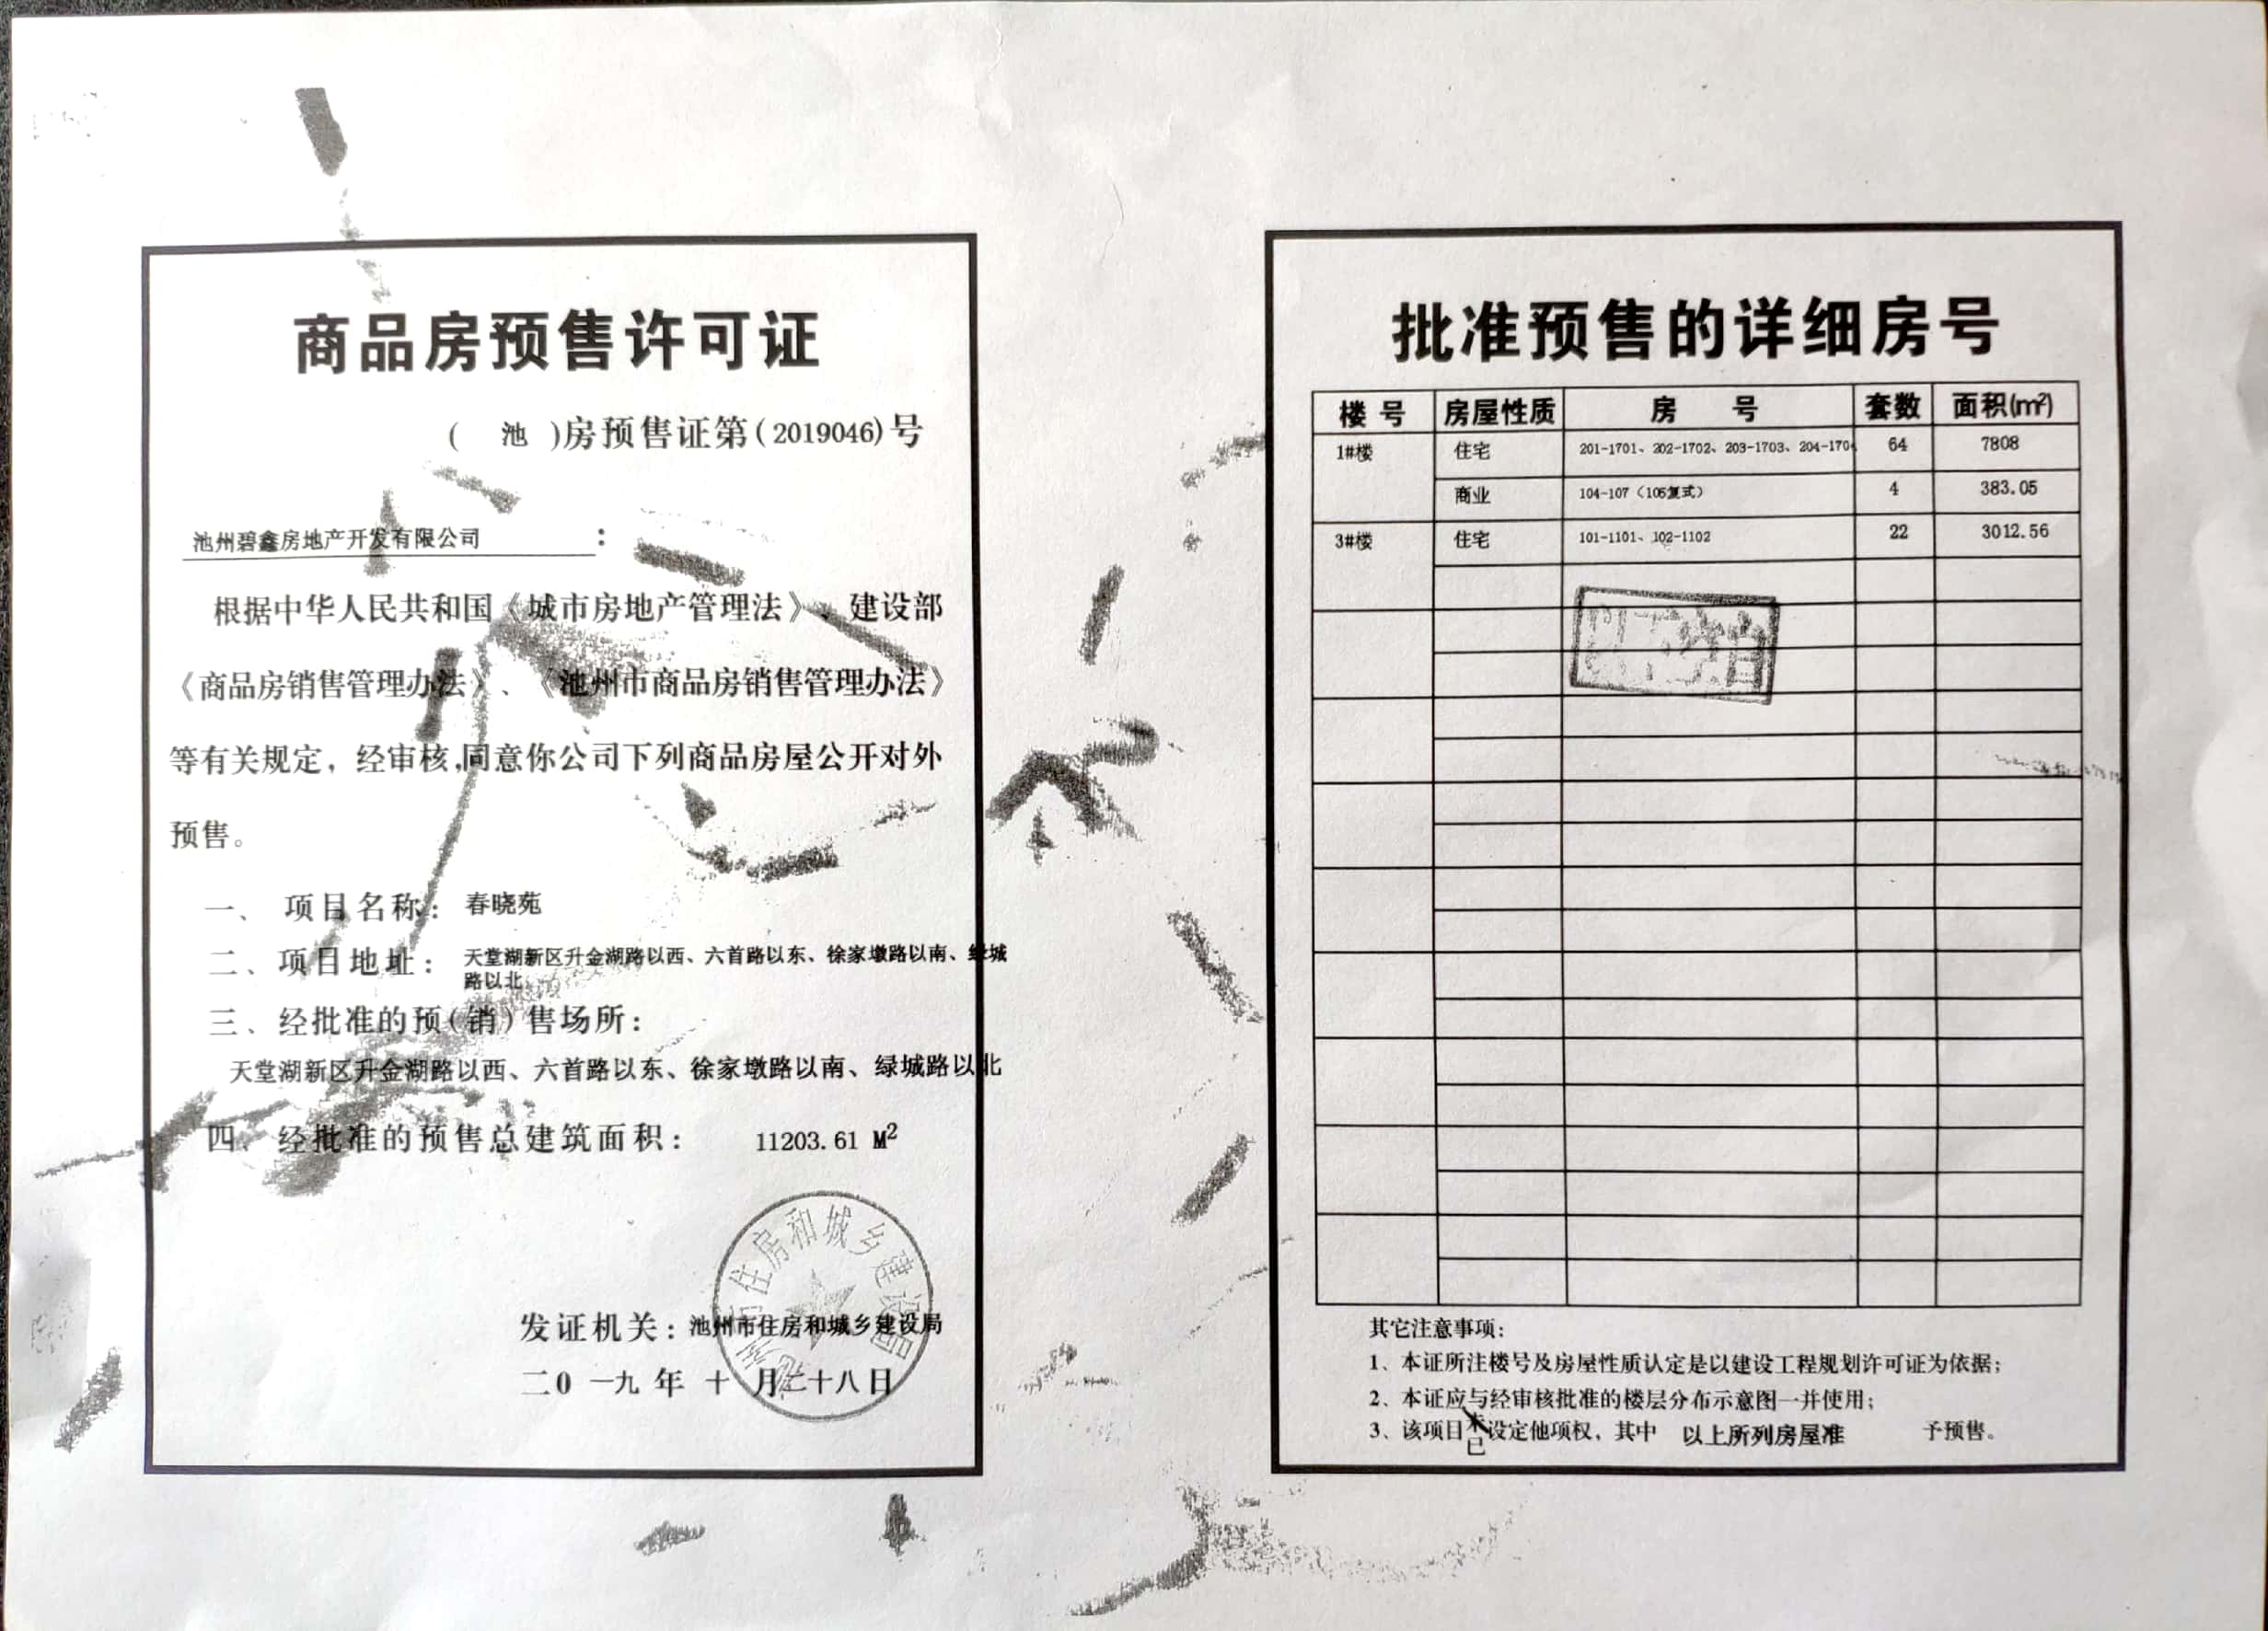 商品房预售许可证
( 池 )房预售证第(2019046)号
池州碧鑫房地产开发有限公司:
根据中华人民共和国《城市房地产管理法》、建设部
《商品房销售管理办法》、《池州市商品房销售管理办法》
等有关规定，经审核,同意你公司下列商品房屋公开对外
预售。
一、项目名称: 春晓苑
二、项目地址: 天堂湖新区升金湖路以西、六首路以东、徐家墩路以南、绿城
路以北
三、经批准的预(销)售场所:
天堂湖新区升金湖路以西、六首路以东、徐家墩路以南、绿城路以北
四、经批准的预售总建筑面积: 11203.61 M²
池州市住房和城乡建设局
发证机关: 池州市住房和城乡建设局
二0一九年十月二十八日
批准预售的详细房号
楼号 房屋性质 房号 套数 面积(m²)
1#楼 住宅 201-1701、202-1702、203-1703、204-170 64 7808
商业 104-107（106复式） 4 383.05
3#楼 住宅 101-1101、102-1102 22 3012.56
以下空白
其它注意事项:
1、本证所注楼号及房屋性质认定是以建设工程规划许可证为依据;
2、本证应与经审核批准的楼层分布示意图一并使用;
3、该项目未已设定他项权，其中 以上所列房屋准 予预售。